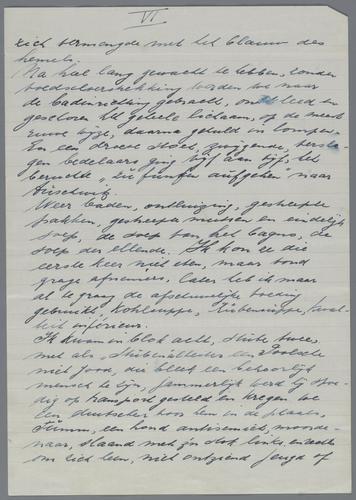 VI
zich vermengde met het blauw des
hemels.
Na heel lang gewacht te hebben, zonder
voedselverstrekking werden we naar
de badinrichting gebracht, ontkleed en
geschoren het geheele lichaam, op de meest
ruwe wijze, daarna gehuld in lompen.
En een droeve stoet, zwijgende, versla-
gen bedelaars ging vijf aan vijf, het
beruchte "zu fünfen aufgehen" naar
Auschwitz.
Weer baden, ontluizing, gestreepte
pakken, gestreepte mutsen, en eindelijk
soep, de soep van het Bagno, de
soep der ellende. Ik kon ze die
eerste keer niet eten, maar vond
grage afnemers, later heb ik maar
al te graag de afschuwelijke voeding
gebruikt, Kohlsuppe, Rübensuppe, kwali-
teit inférieur.
Ik kwam in Block acht, Stube twee,
met als Stubenältester een Poolsche
niet Jood, die bleek een behoorlijk
mensch te zijn, jammerlijk werd hij spoe-
dig op transport gesteld en kregen we
een duitscher voor hem in de plaats,
een hond antisemiet, moorde-
naar, slaand met zijn stok links, en rechts
om zich heen, niet ontziend jeugd of